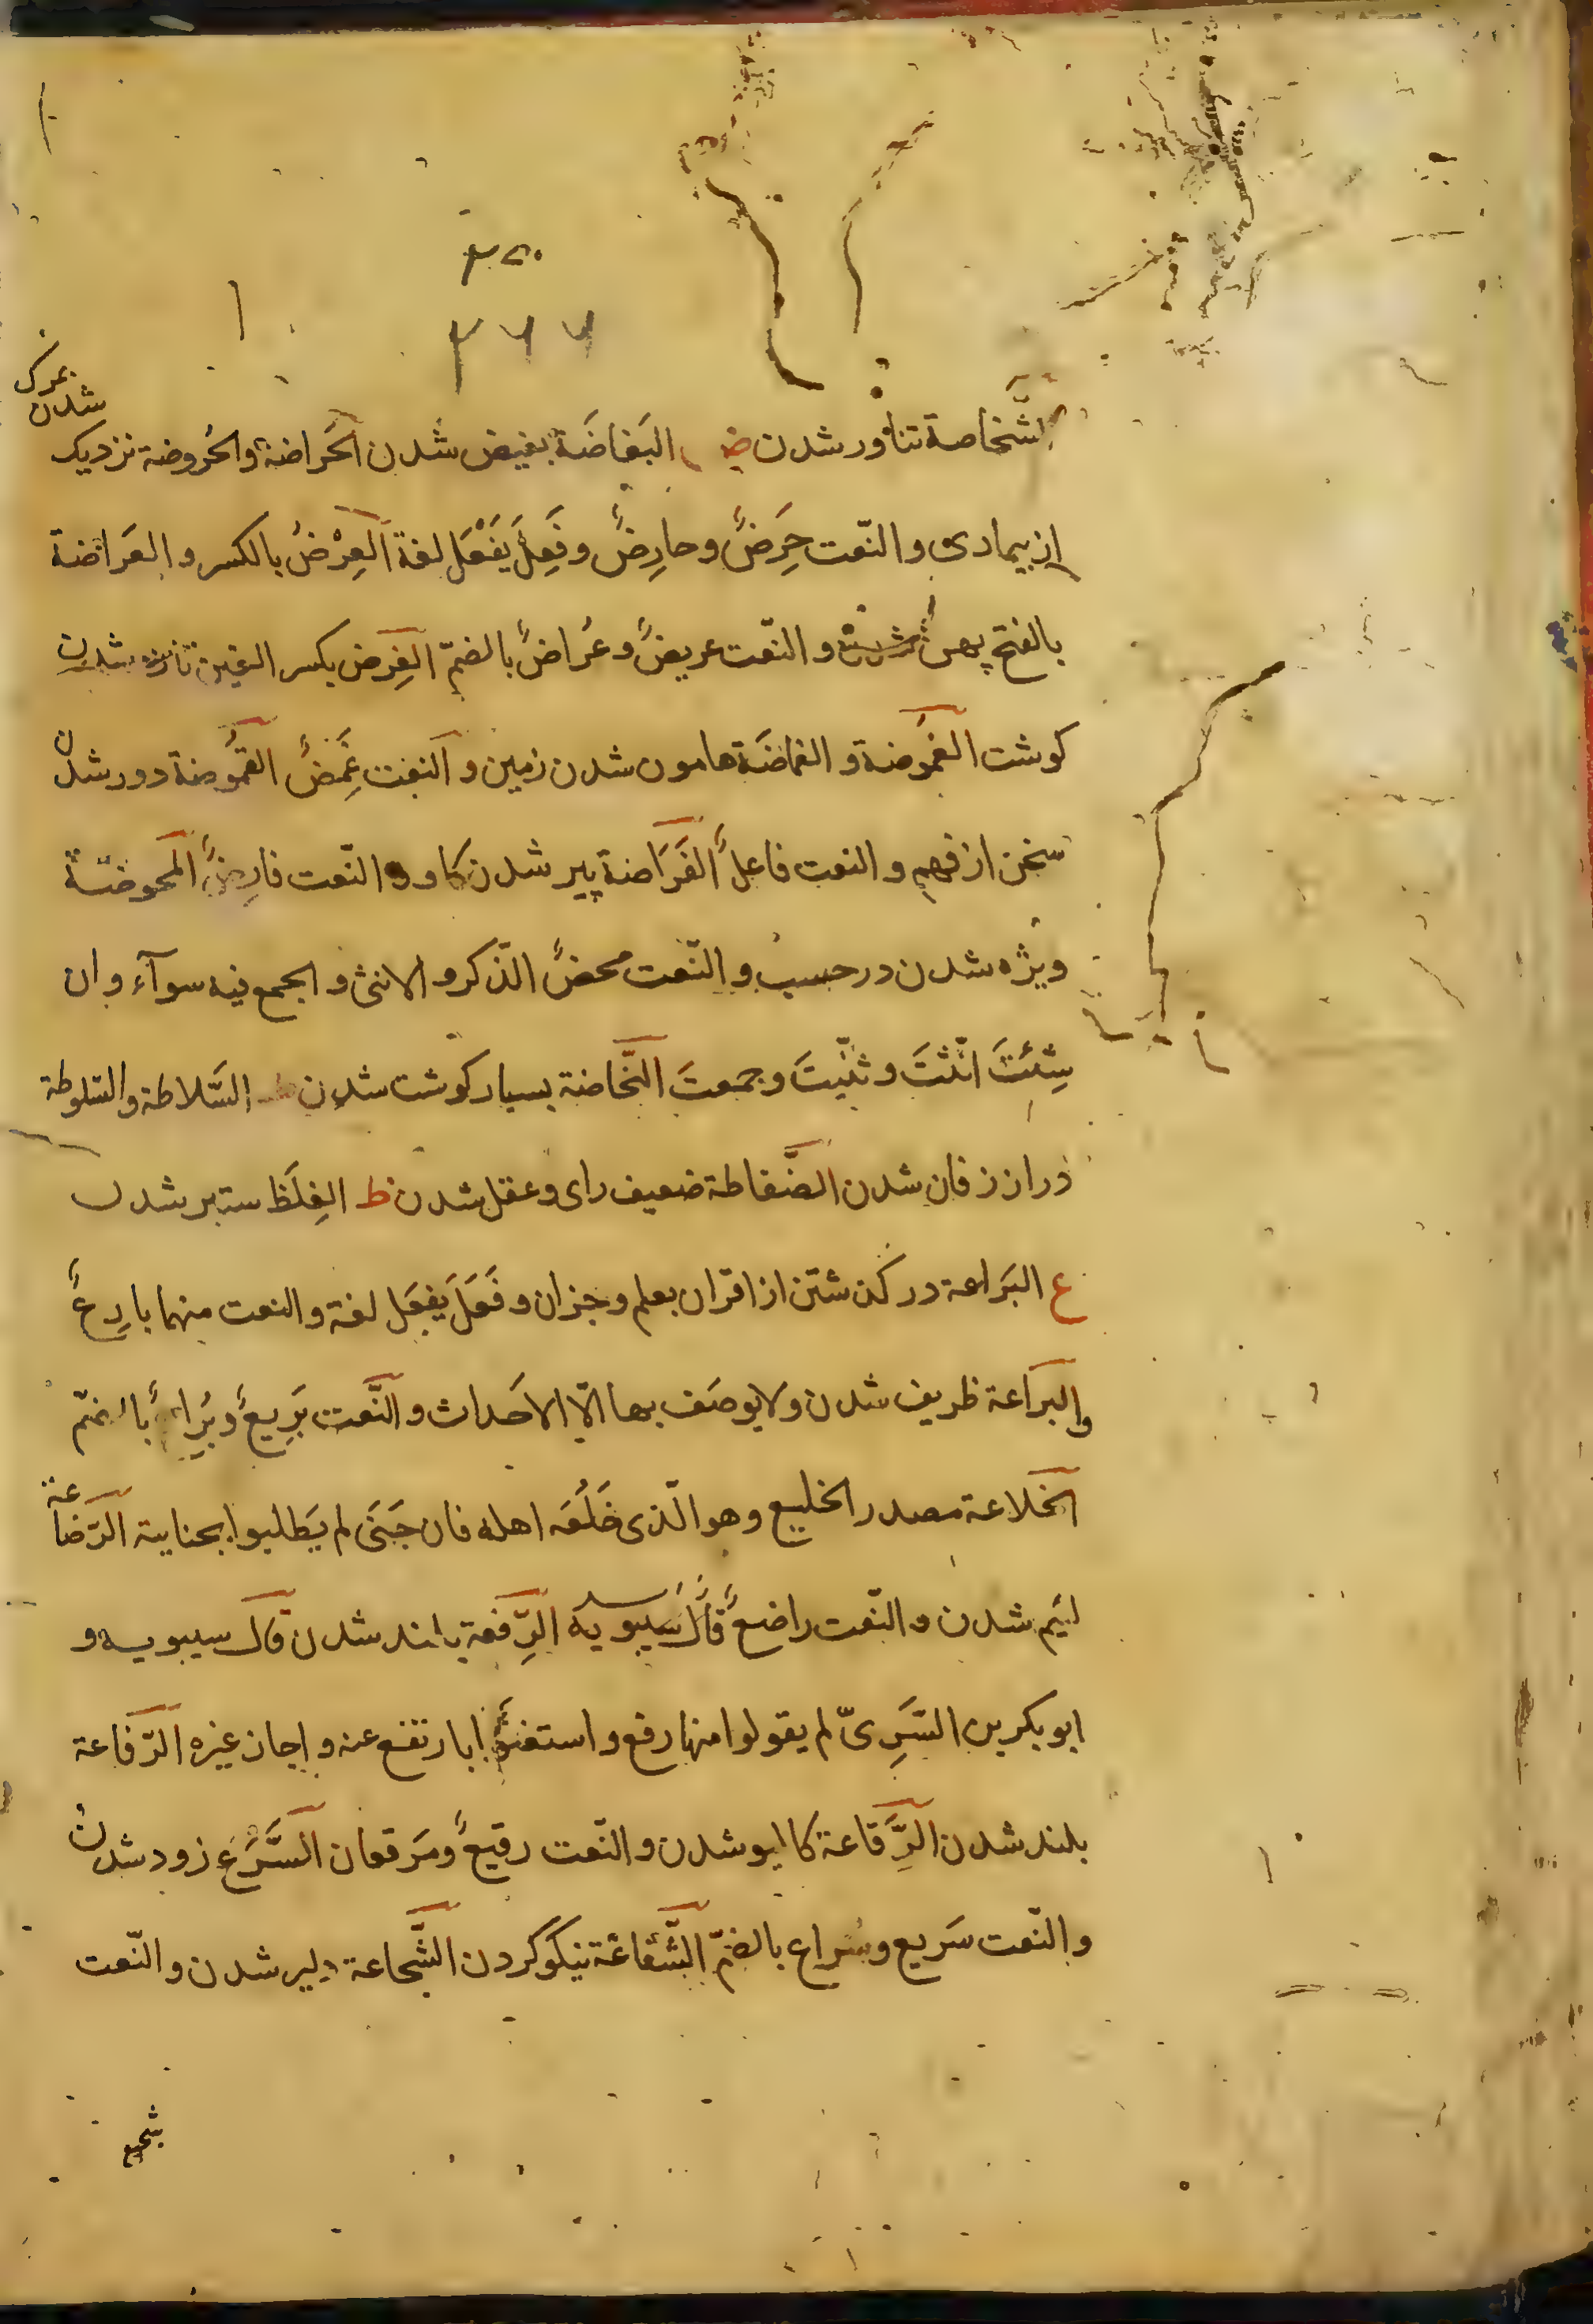 ۲۶۶
الشَّخاصة تناور شدن ض البَغاضَة بغیض شدن الحَراضة والحُروضة نزدیک
بمرک شدن
از بیماری والنّعت حَرِضٌ وحارِضٌ وفَعِلَ یَفْعَل لغة العِرْضُ بالکسر والعَراضة
بالفتح پهن شدن والنّعت عریضٌ وعُراضٌ بالضمّ الغِرَض بکسر الغین تازه شدن
کوشت الغُموضة والغَماضَة هامون شدن زمین والنعت غَمِضٌ الغُمُوضة دور شدن
سخن از فهم والنعت فاعلٌ الفَرَاضة پیر شدن کاو والنّعت فارِضٌ المحوضة
ویژه شدن در حسب والنّعت محضٌ الذّکر والانثی والجمع فیه سوآء وان
شِئتَ انّثتَ وثنّیتَ وجمعتَ النَّحاضة بسیار کوشت شدن ط السَّلاطة والسّلوطة
دراز زفان شدن الضَّفاطة ضعیف رای وعقل شدن ظ الغِلَظ ستبر شدن
ع البَراعة در کذشتن از اقران بعلم وجزان وفَعَلَ یفعَل لغة والنعت منهما بارِعٌ
والبَرَاعة ظریف شدن ولا یوصَف بها الّا الاَحداث والنَّعت بَرِیعٌ وبُراعٌ بالضّم
الخلاعة مصدر الخلیع وهو الّذی خَلَعَه اهله فان جَنَی لم یَطلبوا بجنایته الرَّضاعة
لئیم شدن والنّعت راضعٌ قال سیبویه الرِّفعة بلند شدن قال سیبویه و
ابو بکر بن السَّرِیّ لم یقولوا منها رفع واستغنَوا بارتفع عنه واجاز غیره الرَّفاعة
بلند شدن الرَّقاعة کالیو شدن والنّعت رقیعٌ ومَرقعان السَّرَع زود شدن
والنّعت سَریع وسُراع بالضمّ الشَّفاعَة نیکو کردن الشَّجاعة دلیر شدن والنّعت
شجیع